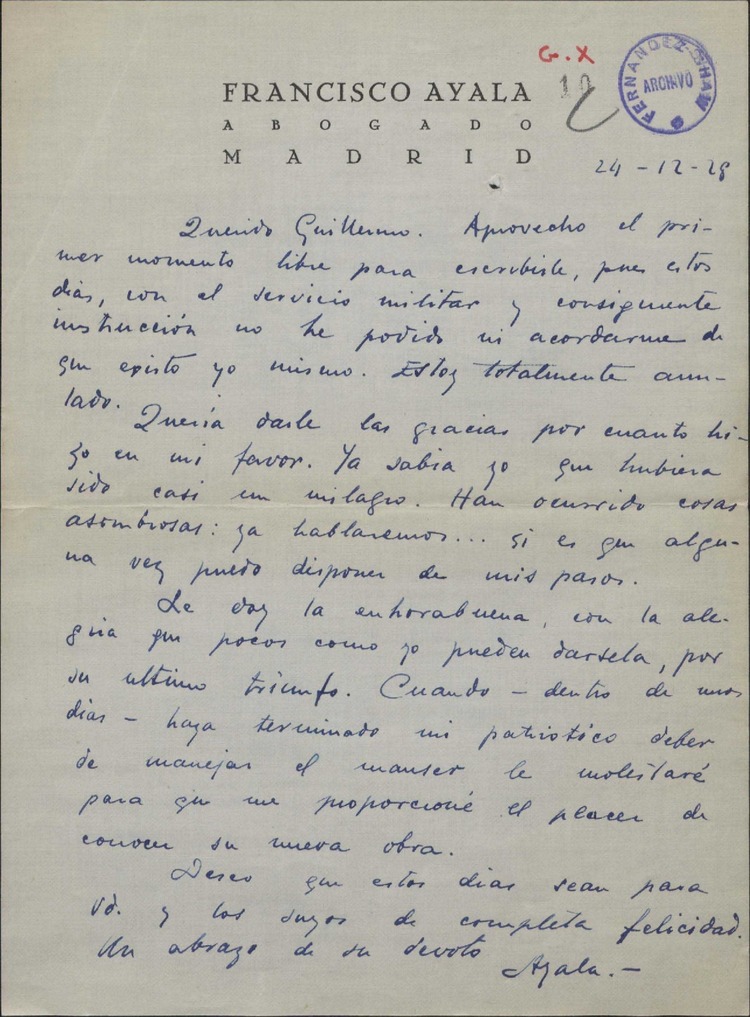 G. X
10
FERNANDEZ-SHAW
ARCHIVO
FRANCISCO AYALA
ABOGADO
MADRID
24-12-28
Querido Guillermo. Aprovecho el pri-
mer momento libre para escribirle, pues estos
días, con el servicio militar y consiguiente
instrucción no he podido ni acordarme de
que existo yo mismo. Estoy totalmente anu-
lado.
Quería darle las gracias por cuanto hi-
zo en mi favor. Ya sabia yo que hubiera
sido casi un milagro. Han ocurrido cosas
asombrosas: ya hablaremos... si es que algu-
na vez puedo disponer de mis pasos.
Le doy la enhorabuena, con la ale-
gria que pocos como yo pueden darsela, por
su ultimo triunfo. Cuando - dentro de unos
dias - haya terminado mi patriotico deber
de manejar el mauser le molestaré
para que me proporcione el placer de
conocer su nueva obra.
Deseo que estos dias sean para
Vd. y los suyos de completa felicidad.
Un abrazo de su devoto
Ayala.-